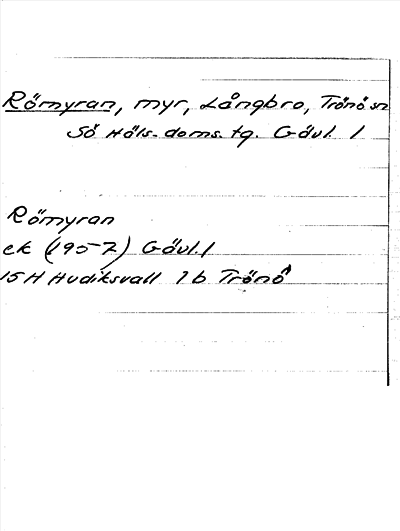 Römyran, myr, Långbro, Trönö sn
Sö Häls. doms. tg. Gävl. l
Römyran
ek (1957) Gävl. l
15H Hudiksvall 1b Trönö